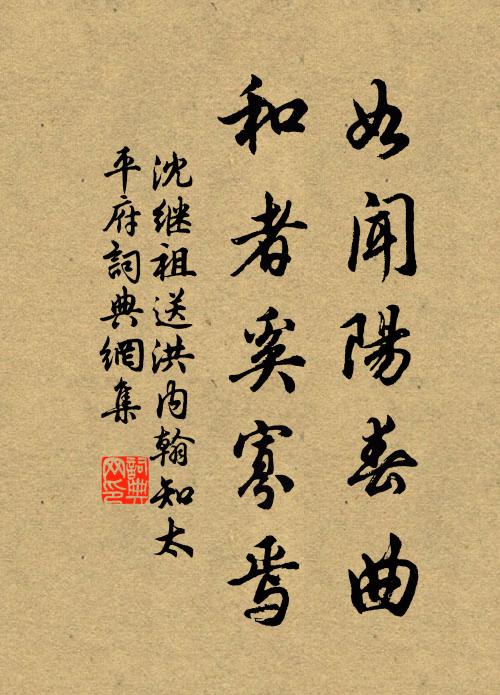 如闻陽春曲
和者奚寡焉
沈继祖送洪内翰知太
平府詞典網集
詞典
网印